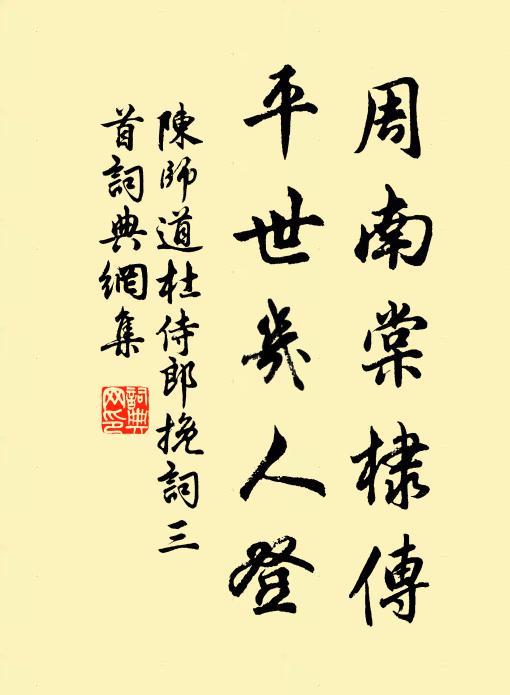 周南棠棣傳
平世幾人登
陳師道杜侍郎挽詞三
首詞典網集
詞典网印